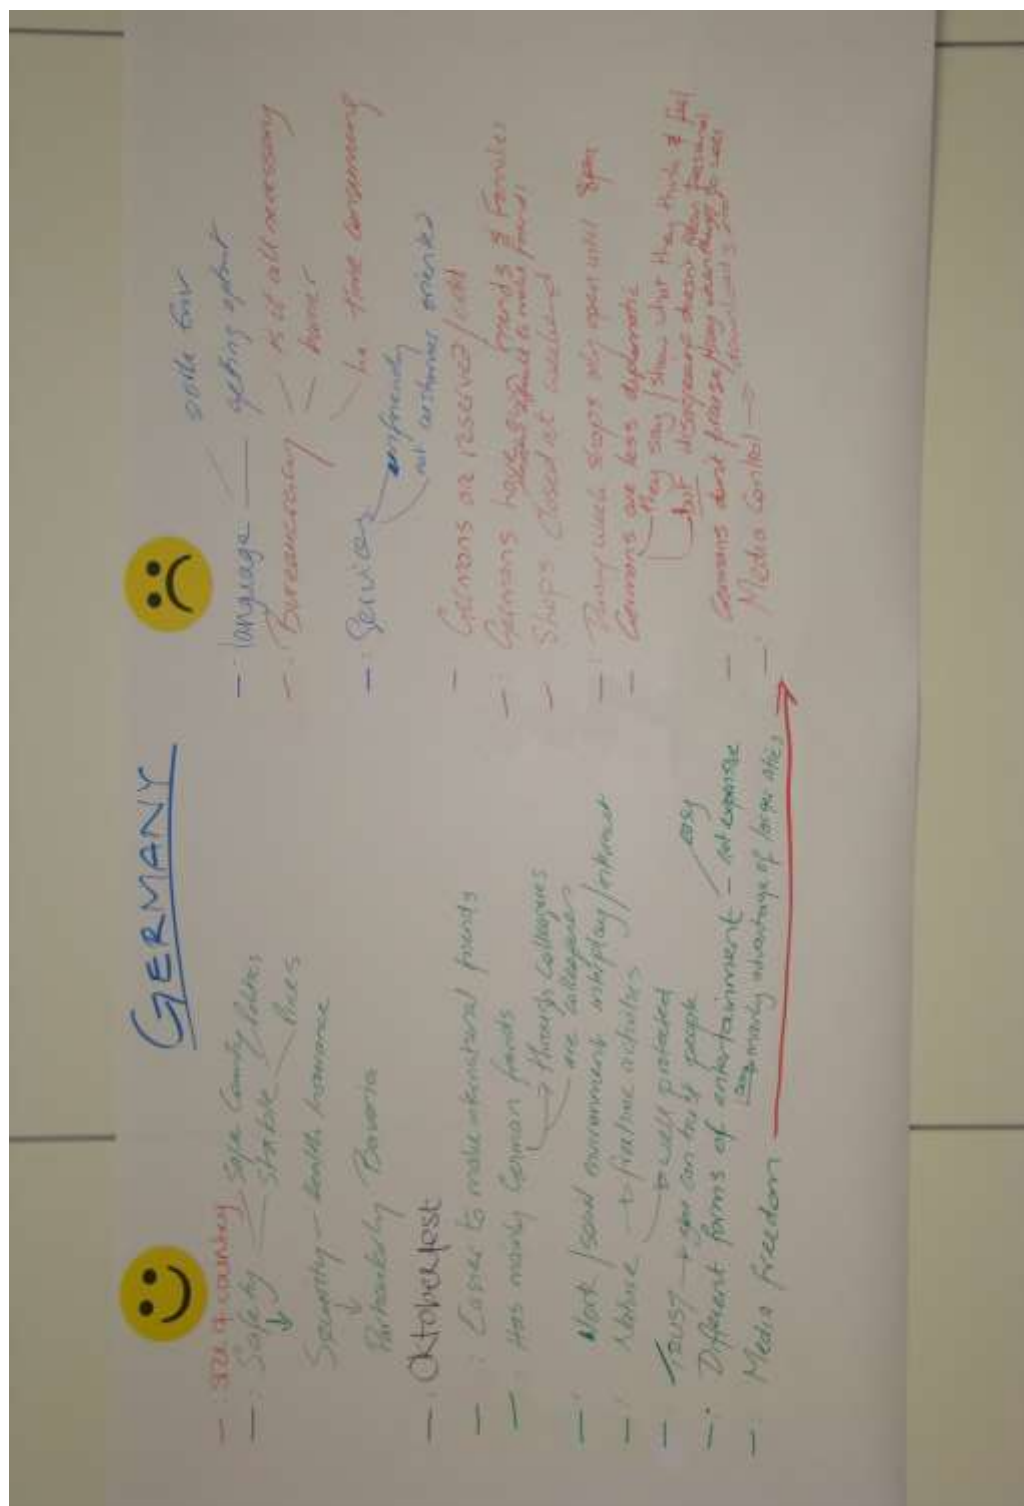 GERMANY
- : size of country
- : Safety Safe Country
Stable Politics
Prices
Security - health insurance
Particularly Bavaria
- : Oktoberfest
- : Easier to make international friends
- : Has many German friends
through colleagues
are colleagues
- : Work / social environment interplay/interact
- : Nature → freetime activities
→ well protected
- : Trust → you can trust people
- : Different forms of entertainment - not expensive
easy
mainly advantage of larger cities
- : Media freedom
- : language
getting upfront
- : Bureaucracy is it all necessary
time consuming
- : Services unfriendly
not customer oriented
- Germans are reserved / cold
- : Germans have friends & Families
difficult to make friends
- Shops closed at weekend
- : During week shops only open until 8pm
- Germans are less diplomatic
they say / show what they think & feel
but
- Germans dont praise
- : Media Control →